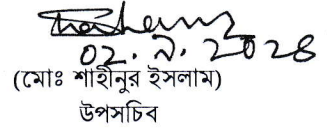 02.৯.2০28
(মোঃ শাহীনুর ইসলাম)
উপসচিব